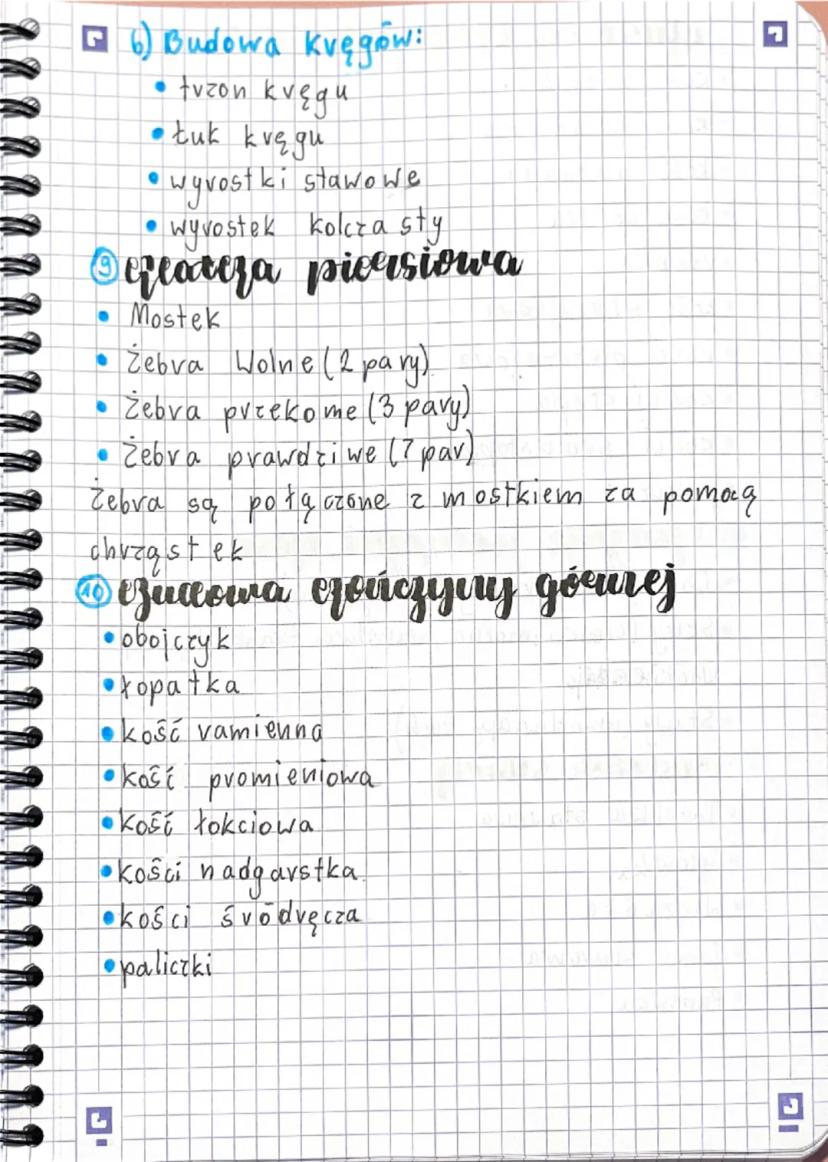 b) Budowa kręgów:
• trzon kręgu
• łuk kręgu
• wyrostki stawowe
• wyrostek kolczasty
9 piersiowa
• Mostek
• Żebra Wolne (2 pary)
• Żebra przekome (3 pary)
• Żebra prawdziwe (7 par)
Żebra są połączone z mostkiem za pomocą
chrząstek
10 górnej
• obojczyk
• łopatka
• kość ramienna
• kość promieniowa
• kość łokciowa
• kości nadgarstka
• kości śródręcza
• paliczki